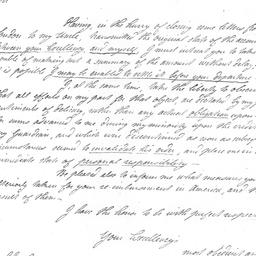 Having, in the hurry of closing some letters for
London to my Uncle, transmitted the original state of the account
between your Excellency and myself, I must intreat you to take
trouble of making out a summary of the amount without delay,
it is possible I may be enabled to settle it before your departure
I at the same time, take the liberty to observe
that all efforts on my part for that object, are dictated by my
sentiments of delicacy rather than any actual obligation upon
sums advanced to me during my minority upon the order
my Guardian, and which were discontinued as soon as
circumstances seemed to invalidate his order, and place me in
immediate state of personal responsibility.
Be pleased also to inform me what measures you
seriously taken for your re-embursement in America, and
result of them.
I have the honor to be with perfect respect
Your Excellency's
most obedient and